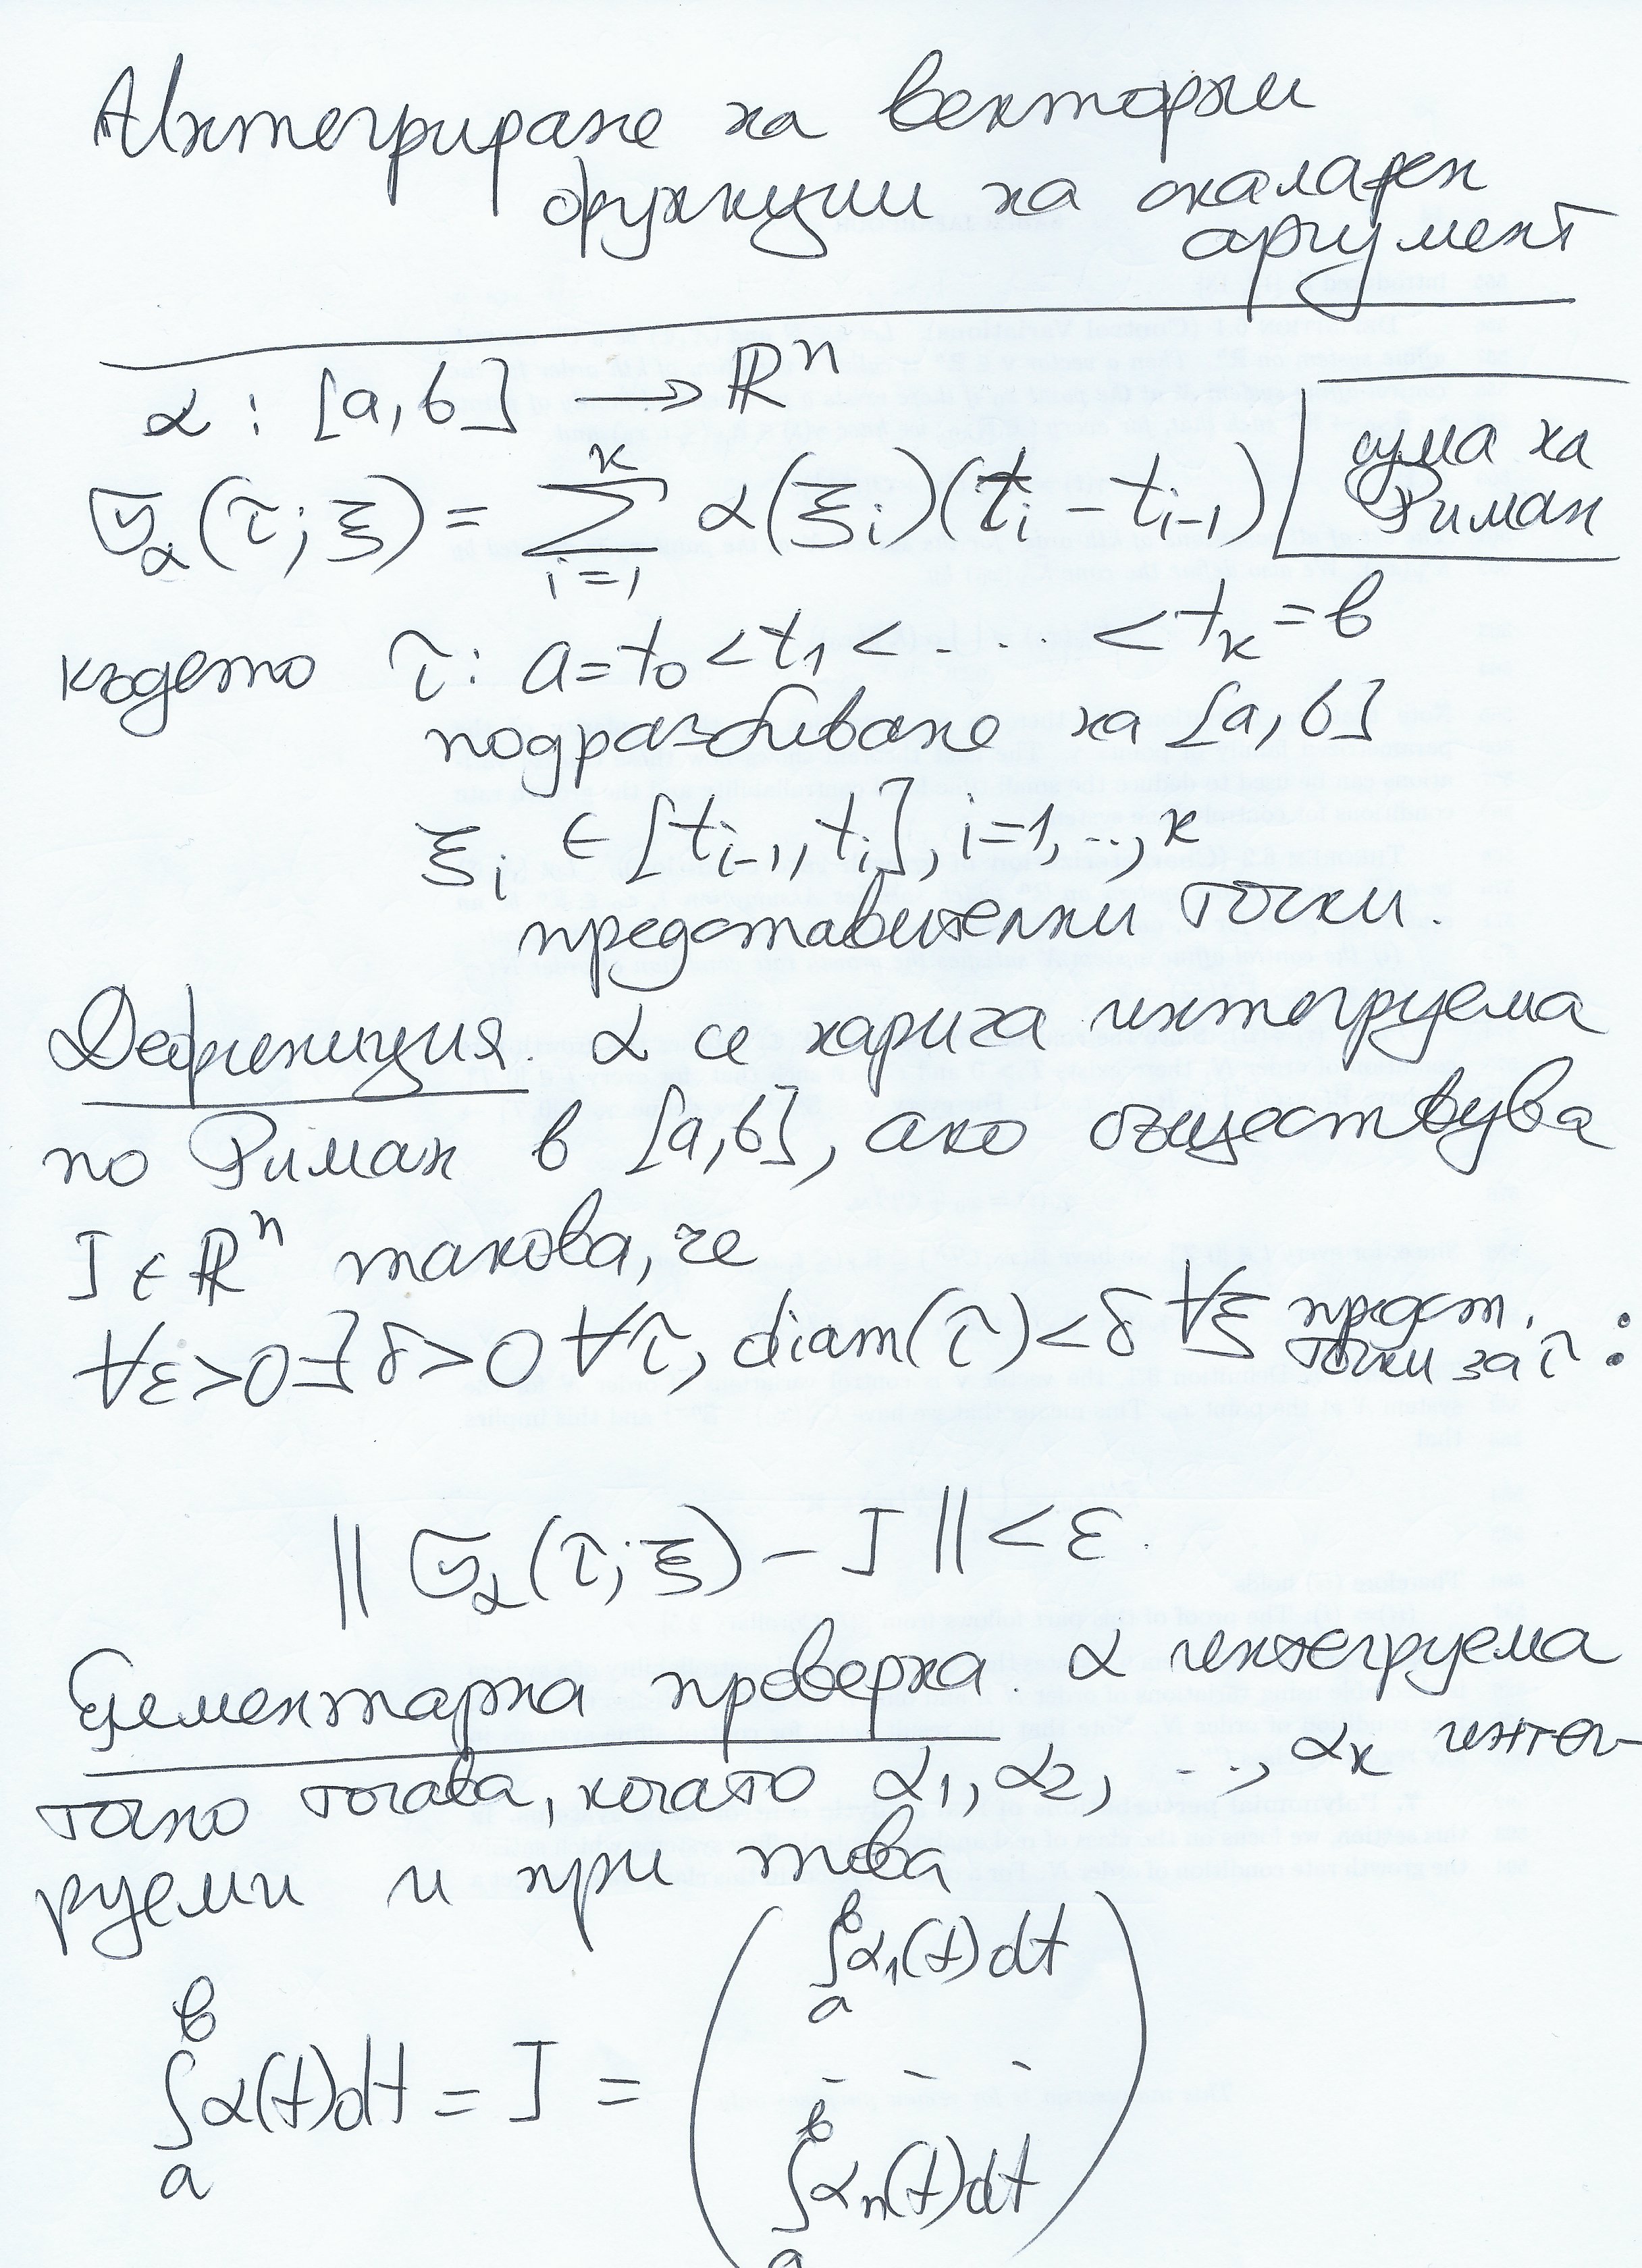 Интегриране на векторни
функции на скаларен
аргумент
α : [a, b] → ℝⁿ
σ_α(τ; ξ) = ∑_{i=1}^{k} α(ξ_i)(t_i − t_{i-1}) | сума на Риман
където τ: a = t₀ < t₁ < ... < t_k = b
подразбиване на [a, b]
ξ_i ∈ [t_{i-1}, t_i], i=1, .., k
представителни точки.
Дефиниция. α се нарича интегруема
по Риман в [a, b], ако съществува
I ∈ ℝⁿ такова, че
∀ε>0 ∃δ>0 ∀τ, diam(τ)<δ ∀ξ предст. точки за τ :
|| σ_α(τ; ξ) − I || < ε.
Елементарна проверка. α интегруема
точно тогава, когато α₁, α₂, ..., α_k интег-
руеми и при това
∫_a^b α(t)dt = I = ( ∫_a^b α₁(t)dt - - - ∫_a^b α_n(t)dt